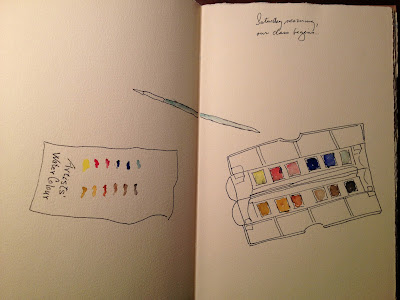 Artists'
Water Colour
Saturday morning,
our class begins.